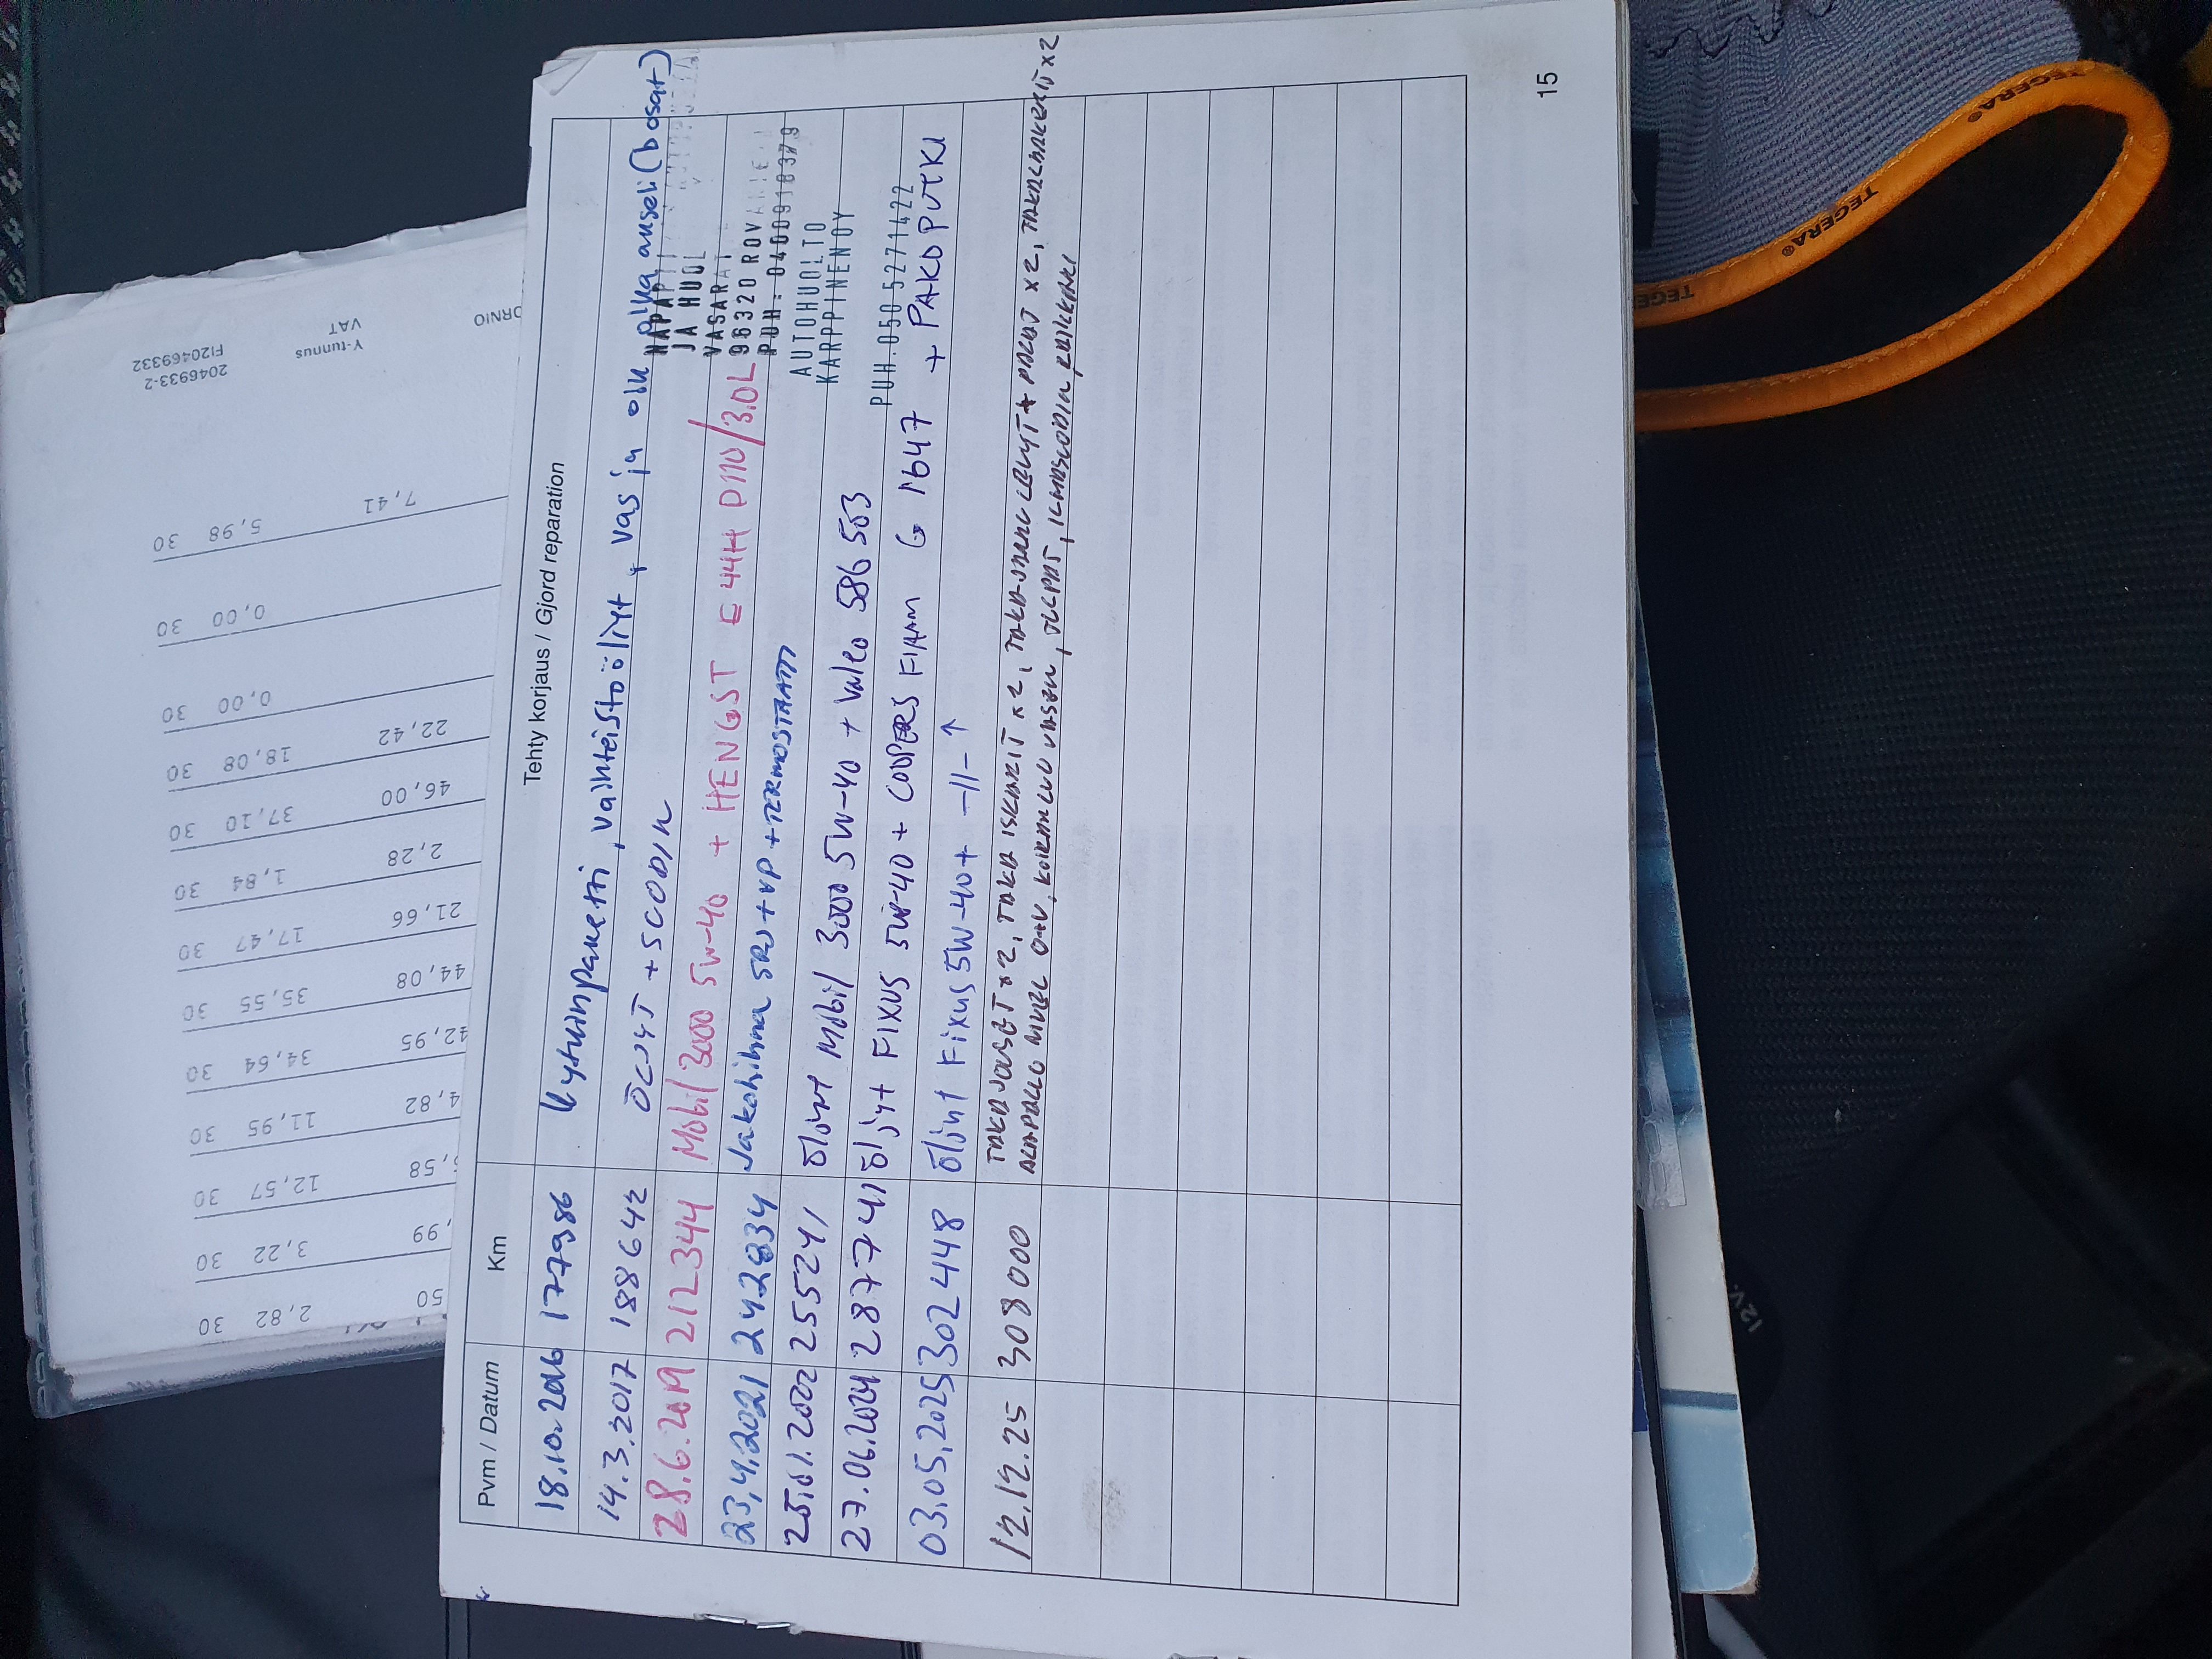 Tehty korjaus / Gjord reparation
Pvm / Datum Km
18.10.2016 177986 Kytkinpaketti, vaihteistoöljyt + vas ja oik alka akseli (b osat)
14.3.2017 188642 ÖLJYT + SCODIN
28.6.2019 212344 Mobil 3000 5W-40 + HENGST E44H D110/3.0L
23.4.2021 242834 Jakohihna SRJ + VP + TERMOSTAATTI
25.01.2002 255241 Öljynt Mobil 3000 5W-40 + Valeo 586 503
27.06.2024 287741 Öljyt FIXUS 5W-40 + COOPERS FIAAM G 1647 + PAKOPUTKI
03.05.2025 302448 Öljynt Fixus 5W-40 + -11- ↑
12.12.25 308000 TAKA JOUSET x2, TAKA ISKARIT x2, TAKA-JARRU LEVYT + PALAT x2,
ALAPALLO NIVEL O+V,
JA HUOL
VASARAT
96320 ROVANIE
PUH: 0400918379
AUTOHUOLTO
KARPPINEN OY
PUH. 050 5271422
15
Y-tunnus
VAT
2046933-2
FI20469332
ORNIO
7,41
5,98 30
0,00 30
0,00 30
22,42
18,08 30
46,00
37,10 30
2,28
1,84 30
21,66
17,47 30
44,08
35,55 30
42,95
34,64 30
4,82
11,95 30
,58
12,57 30
,99
3,22 30
50
2,82 30
TEGERA®
TEGERA®
TEGERA®
12V